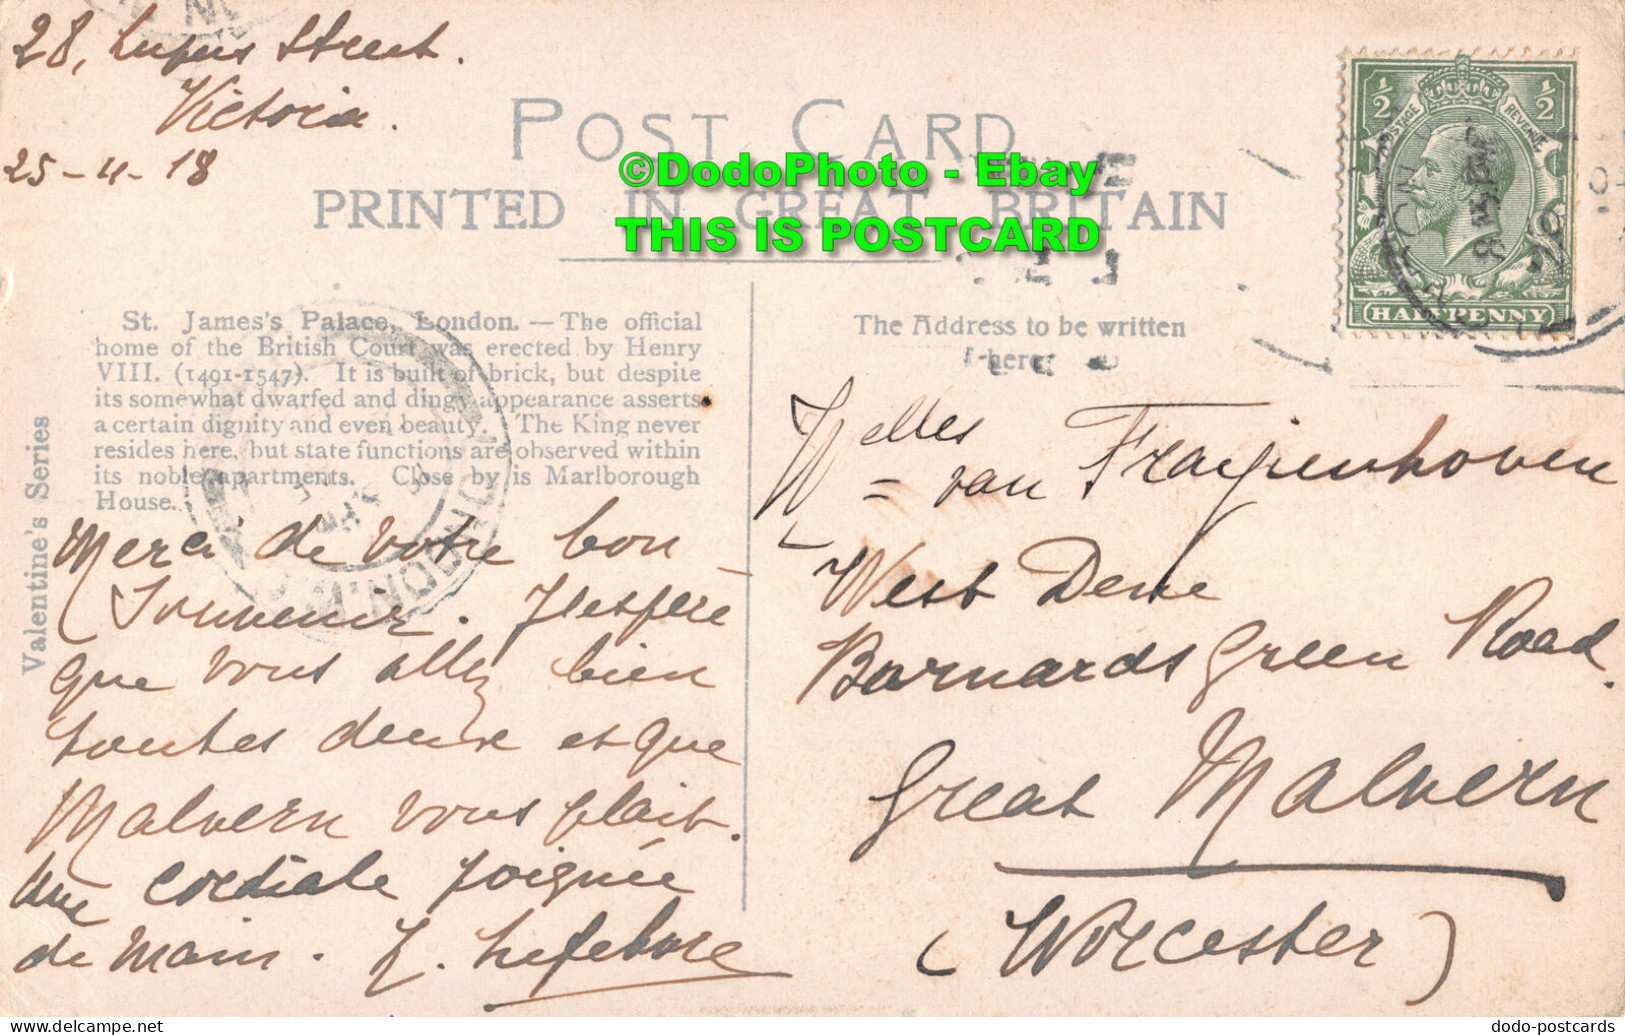 28, Lupus Street.
Victoria.
25-4-18
POST CARD
PRINTED IN GREAT BRITAIN
©DodoPhoto - Ebay
THIS IS POSTCARD
½ ½
POSTAGE REVENUE
HALFPENNY
St. James's Palace, London. — The official
home of the British Court was erected by Henry
VIII. (1491-1547). It is built of brick, but despite
its somewhat dwarfed and dingy appearance asserts
a certain dignity and even beauty. The King never
resides here, but state functions are observed within
its noble apartments. Close by is Marlborough
House.
Valentine's Series
The Address to be written
here
Merci de votre bon
Souvenir. J'espère
que vous allez bien
toutes deux et que
Malvern vous plait.
Une cordiale poignée
de main. J. Lefebvre
Welles
van Fraeyenhoven
West Dene
Barnards Green Road.
Great Malvern
(Worcester)
LONDON
dodo-postcards